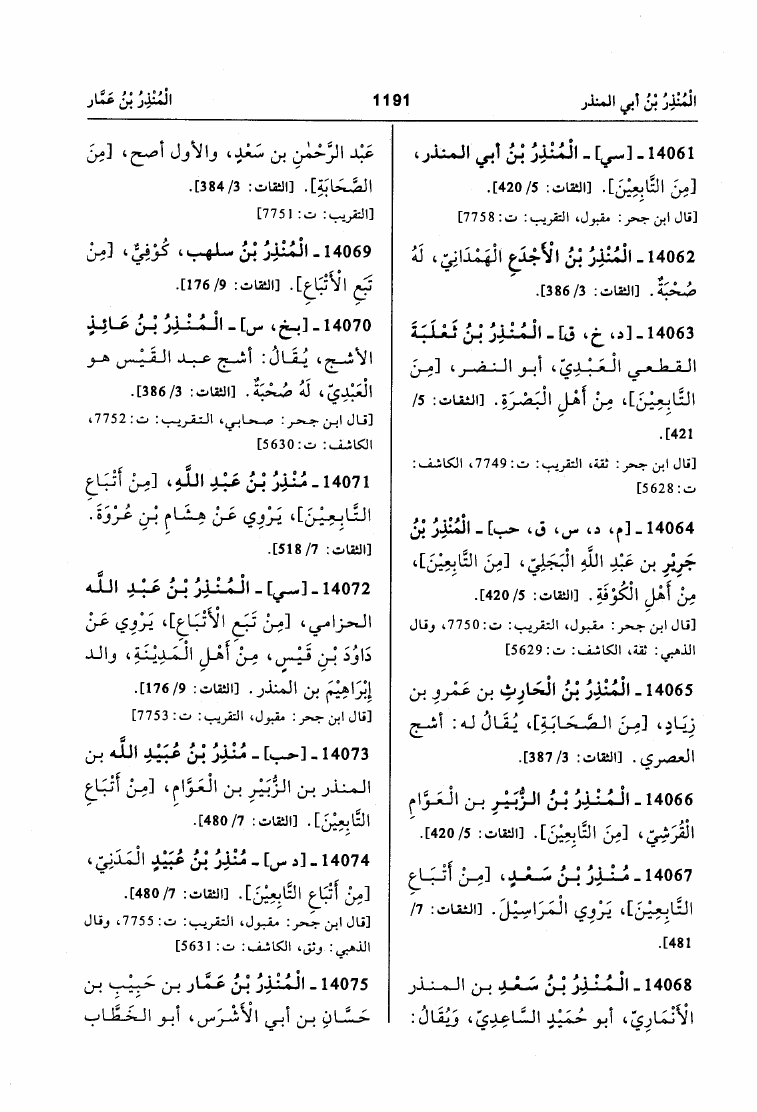 الْمُنْذِرُ بْنُ أبي المنذر
1191
الْمُنْذِرُ بْنُ عَمَّار
14061 - [سي] - الْمُنْذِرُ بْنُ أبي المنذر،
[مِنَ التَّابِعِيْنَ]. [الثقات: 5/ 420].
[قال ابن جحر: مقبول، التقريب: ت: 7758]
14062 - الْمُنْذِرُ بْنُ الأَجْدَعِ الْهَمْدَانِيّ، لَهُ
صُحْبَةٌ. [الثقات: 3/ 386].
14063 - [د، خ، ق] - الْمُنْذِرُ بْنُ ثَعْلَبَةَ
القطعي الْعَبْدِيّ، أبو النضر، [مِنَ
التَّابِعِيْنَ]، مِنْ أَهْلِ الْبَصْرَةِ. [الثقات: 5/
421].
[قال ابن جحر: ثقة، التقريب: ت: 7749، الكاشف:
ت: 5628]
14064 - [م، د، س، ق، حب] - الْمُنْذِرُ بْنُ
جَرِيْرِ بن عَبْدِ اللَّهِ الْبَجَلِيّ، [مِنَ التَّابِعِيْنَ]،
مِنْ أَهْلِ الْكُوْفَةِ. [الثقات: 5/ 420].
[قال ابن جحر: مقبول، التقريب: ت: 7750، وقال
الذهبي: ثقة، الكاشف: ت: 5629]
14065 - الْمُنْذِرُ بْنُ الْحَارِثِ بن عَمْرِو بن
زِيَاد، [مِنَ الصَّحَابَةِ]، يُقَالُ له: أشج
العصري. [الثقات: 3/ 387].
14066 - الْمُنْذِرُ بْنُ الزُّبَيْرِ بن الْعَوَّامِ
الْقُرَشِيّ، [مِنَ التَّابِعِيْنَ]. [الثقات: 5/ 420].
14067 - مُنْذِرُ بْنُ سَعْدٍ، [مِنْ أَتْبَاعِ
التَّابِعِيْنَ]، يَرْوِي الْمَرَاسِيْلَ. [الثقات: 7/
481].
14068 - الْمُنْذِرُ بْنُ سَعْدِ بن المنذر
الأَنْمَارِيّ، أبو حُمَيْدٍ السَّاعِدِيّ، وَيُقَالُ:
عَبْد الرَّحْمٰنِ بن سَعْدٍ، والأول أصح، [مِنَ
الصَّحَابَةِ]. [الثقات: 3/ 384].
[التقريب: ت: 7751]
14069 - الْمُنْذِرُ بْنُ سلهب، كُوْفِيٌّ، [مِنْ
تَبَعِ الأَتْبَاعِ]. [الثقات: 9/ 176].
14070 - [بخ، س] - الْمُنْذِرُ بْنُ عَائِذٍ
الأشج، يُقَالُ: أشج عبد القَيْس هو
الْعَبْدِيّ، لَهُ صُحْبَةٌ. [الثقات: 3/ 386].
[قال ابن جحر: صحابي، التقريب: ت: 7752،
الكاشف: ت: 5630]
14071 - مُنْذِرُ بْنُ عَبْدِ اللَّهِ، [مِنْ أَتْبَاعِ
التَّابِعِيْنَ]، يَرْوِي عَنْ هِشَامِ بْنِ عُرْوَةَ.
[الثقات: 7/ 518].
14072 - [سي] - الْمُنْذِرُ بْنُ عَبْدِ اللَّه
الحزامي، [مِنْ تَبَعِ الأَتْبَاعِ]، يَرْوِي عَنْ
دَاوُدَ بْنِ قَيْسٍ، مِنْ أَهْلِ الْمَدِيْنَةِ، والد
إِبْرَاهِيْمَ بن المنذر. [الثقات: 9/ 176].
[قال ابن جحر: مقبول، التقريب: ت: 7753]
14073 - [حب] - مُنْذِرُ بْنُ عُبَيْدِ اللَّه بن
المنذر بن الزُّبَيْرِ بن الْعَوَّامِ، [مِنْ أَتْبَاعِ
التَّابِعِيْنَ]. [الثقات: 7/ 480].
14074 - [د س] - مُنْذِرُ بْنُ عُبَيْدٍ الْمَدَنِيّ،
[مِنْ أَتْبَاعِ التَّابِعِيْنَ]. [الثقات: 7/ 480].
[قال ابن جحر: مقبول، التقريب: ت: 7755، وقال
الذهبي: وثق، الكاشف: ت: 5631]
14075 - الْمُنْذِرُ بْنُ عَمَّار بن حَبِيْبِ بن
حَسَّان بن أبي الأَشْرَس، أبو الْخَطَّاب